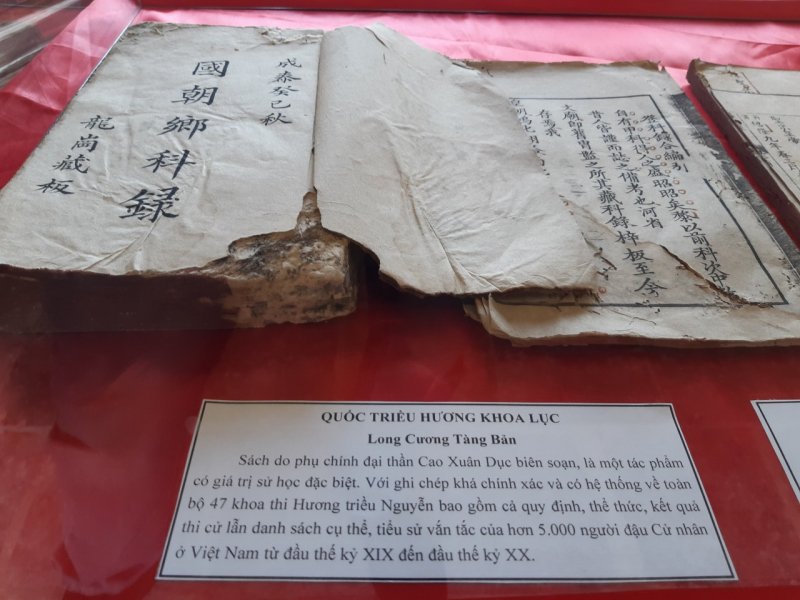 成泰癸巳秋
國朝鄉科錄
龍崗藏板
科錄合編引
自有甲科得人之盛昭昭矣黎以前科次
之備考也河省
監之所其藏科錄梓板至今
存焉我
QUỐC TRIỀU HƯƠNG KHOA LỤC
Long Cương Tàng Bản
Sách do phụ chính đại thần Cao Xuân Dục biên soạn, là một tác phẩm
có giá trị sử học đặc biệt. Với ghi chép khá chính xác và có hệ thống về toàn
bộ 47 khoa thi Hương triều Nguyễn bao gồm cả quy định, thể thức, kết quả
thi cử lẫn danh sách cụ thể, tiểu sử vắn tắc của hơn 5.000 người đậu Cử nhân
ở Việt Nam từ đầu thế kỷ XIX đến đầu thế kỷ XX.